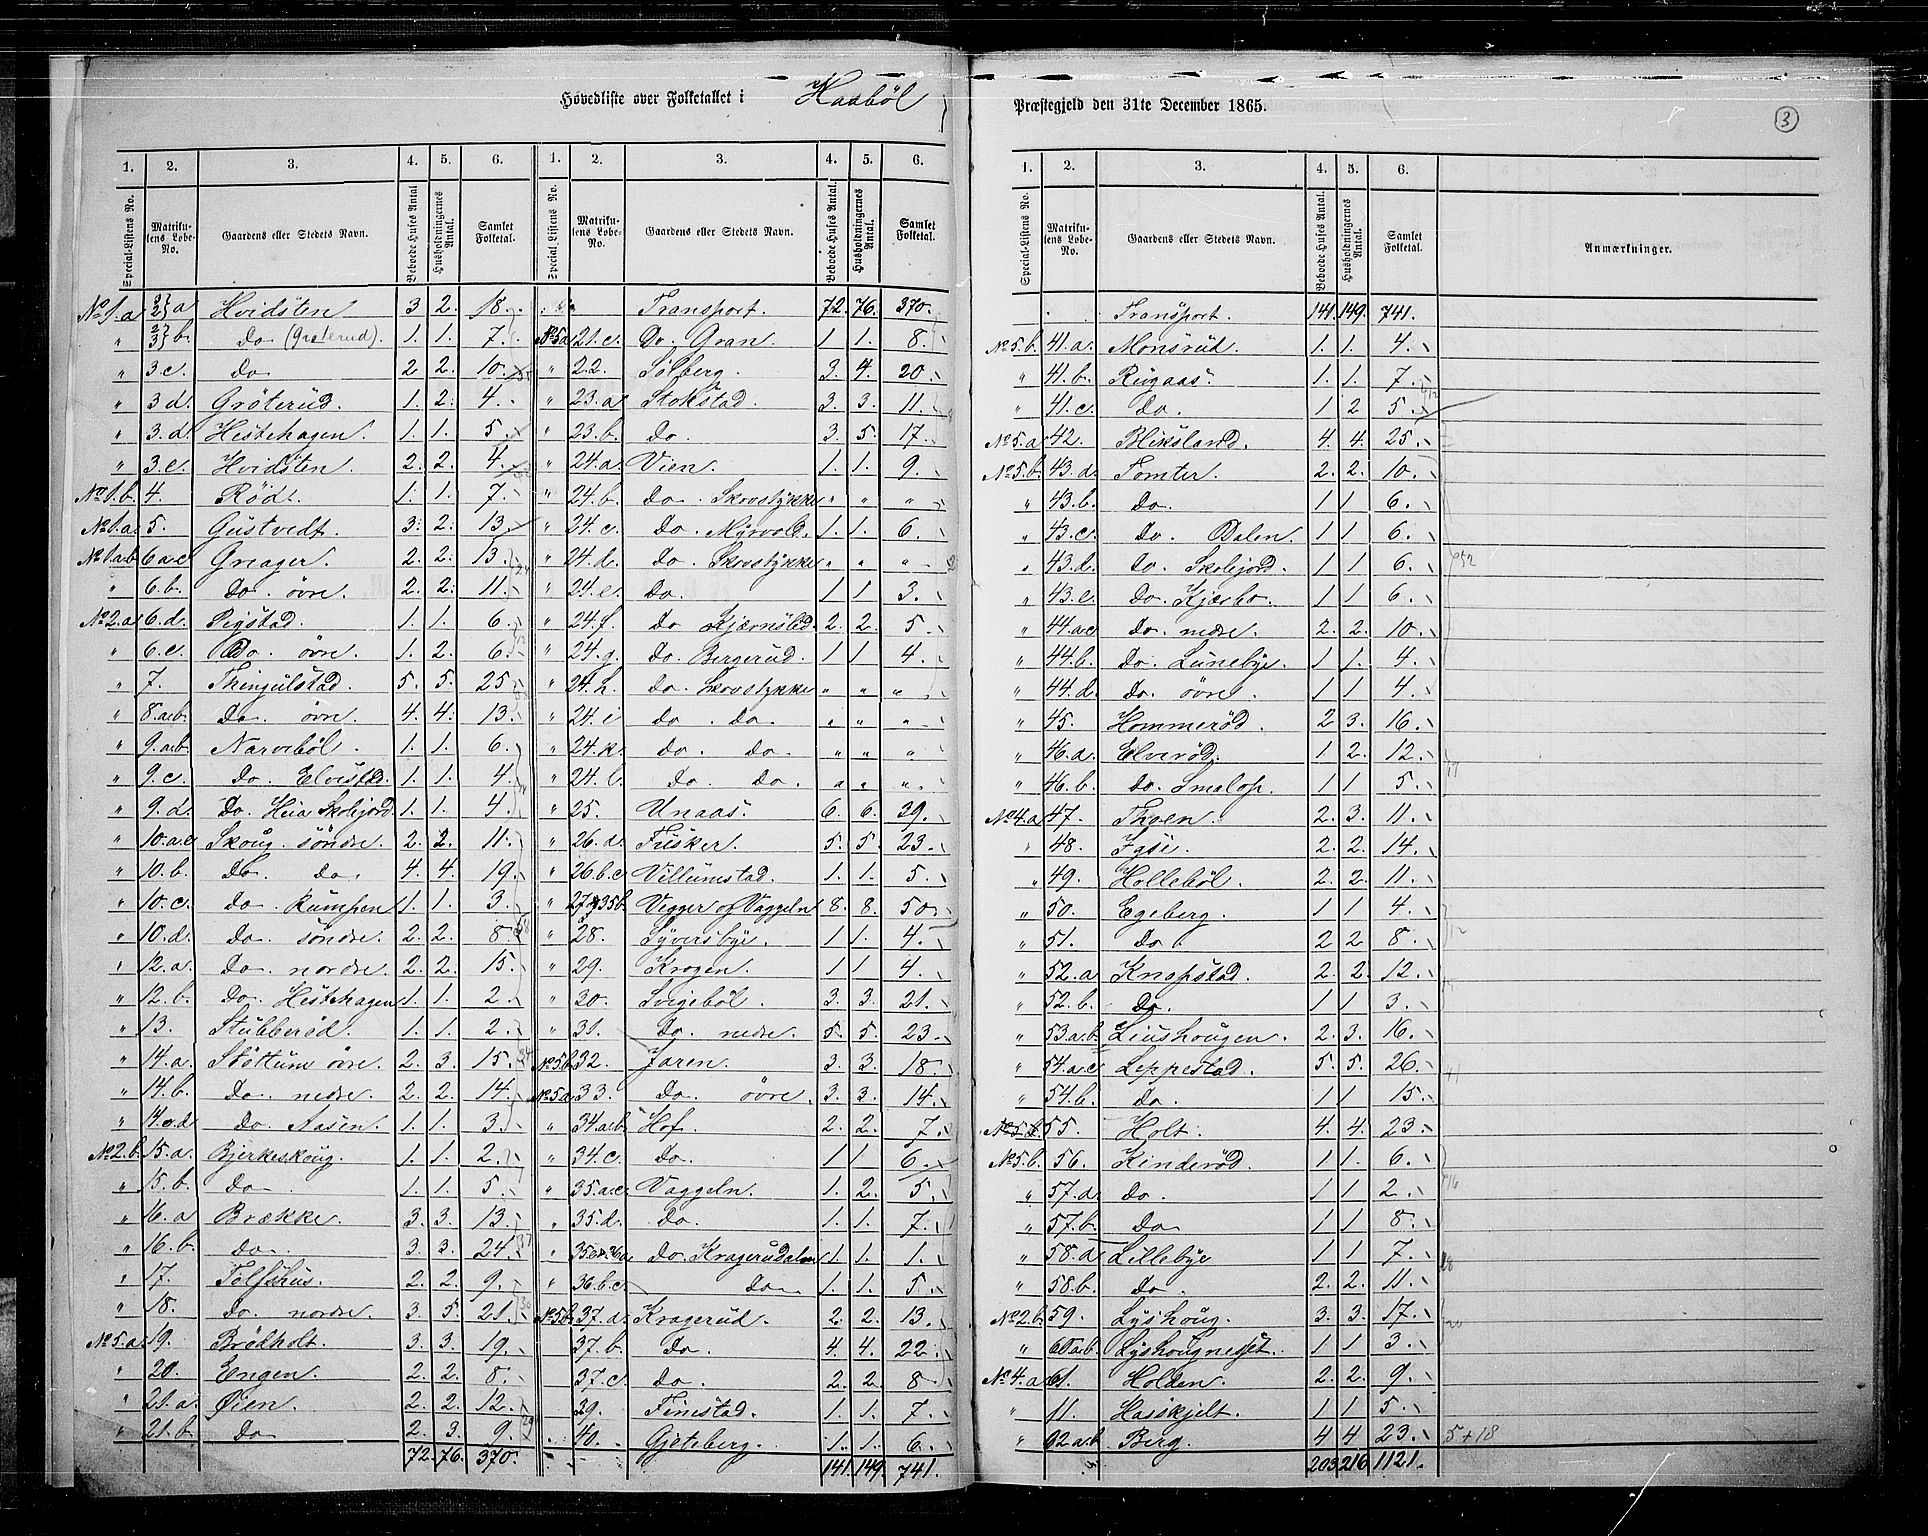 Hovedliste over Folketallet i Haabøl
Præstegjeld den 31te December 1865.
3
1. 2. 3. 4. 5. 6.
Special-Listens No. Matrikulens Løbe-No. Gaardens eller Stedets Navn. Beboede Huses Antal Husholdningernes Antal. Samlet Folketal.
No 1.a a Hvidsten 3 2. 18.
" b. Do (Grøterud). 1. 1. 7.
" 3.c. do 2 2. 10.
" 3 d. Gröterud. 1. 2. 4.
" 3.d. Hestehagen. 1. 1. 5.
" 3.e. Hvidsten. 2. 2. 4.
No 1.b. 4. Röd. 1. 1. 7.
No 1.a. 5. Gustvedt. 3. 2. 13.
No 1.ab 6 a c Greager. 2. 2. 13.
" 6.b. Do. övre. 2. 2. 11.
No 2.a. 6.d. Sigstad. 1. 1. 6.
" 6.e. Do. övre. 1. 2. 6.
" 7. Thingulstad. 5. 5. 25.
" 8.a.b. Do. övre. 4. 4. 13.
" 9.a.b. Narvebøl. 1. 1. 6.
" 9.c. Do. Elvestad. 1. 1. 4.
" 9.d. Do. Heia Skolejord 1. 1. 4.
" 10.a.e Skoug söndre. 2. 2. 11.
" 10.b. Do. do. 4. 4. 19.
" 10.c. do Rumpen 1. 1. 3.
" 10.d. Do. söndre. 2. 2. 8.
" 12.a. Do. nordre. 2. 2. 15.
" 12.b. Do. Hestehagen 1. 1. 2.
" 13. Stubberöd. 1. 1. 2.
" 14.a. Støttum övre. 2. 3. 15.
" 14.b. Do. nedre. 2. 2. 14.
" 14.c.d. Do. Aasen. 1. 1. 3.
No 2.b. 15.a. Bjerkeskoug. 1. 1. 2.
" 15.b. Do. 1. 1. 5.
" 16.a Brække. 3. 3. 13.
" 16.b. Do. 3. 3. 24.
" 17. Tolfshus. 2. 2. 9.
" 18. do. nordre 3. 5. 21.
No 5.a. 19. Brödholt. 3. 3. 19.
" 20. Engen. 2. 2. 8.
" 21.a. Øien. 2. 2. 12.
" 21.b. Do 2. 3. 9.
72. 76. 370.
1. 2. 3. 4. 5. 6.
Special Listens No. Matrikulens Løbe-No. Gaardens eller Stedets Navn. Beboede Huses Antal. Husholdningernes Antal. Samlet Folketal.
Transport. 72. 76. 370.
No 5a 21.c. Do. Gran. 1 1. 8.
" 22. Solberg. 3. 4. 20.
" 23.a. Stokstad. 3. 3. 11.
" 23.b. Do. 3. 5. 17.
" 24.a. Vien. 1. 1. 9.
" 24.b. do. Skovstykke " " "
" 24.c. Do. Myrvold. 1. 1. 6.
" 24.d. do. Skovstykke " " "
" 24.e. Do. 1 1 3.
" 24.f. do Kjærnsled. 2. 2. 5.
" 24.g. do. Bergerud. 1 1 4.
" 24.h. do. Skovstykke " " "
" 24.i do. do. " " "
" 24.k. do. do. " " "
" 24.l. do. do. " " "
" 25. Unaas. 6. 6. 29.
" 26.a. Fusker. 5. 5. 23.
" 26.b.c Villumstad. 1. 1. 5.
" 27 35b. Vegger og Vaggeln 8. 8. 50
" 28. Syversbye. 1 1. 4.
" 29. Krogen. 1 1 4.
" 30. Svigeböl. 3. 3. 21.
" 31. Do. nedre. 5. 5. 23.
No 5.b. 32. Jaren. 3. 3. 18.
No 5a 33. Do. övre. 3. 3. 14.
" 34.a.b. Hof. 2. 2. 7.
" 34.c. Do. 1 1 6.
" 35.a.c. Vaggeln. 1. 2. 5.
" 35.d. do. 1. 1. 7.
" Do. Kragerudalen 1. 1. 1.
" 36.b.c. Do 1. 1. 5.
No 5b. 37.a. Kragerud. 2. 2. 13.
37.b. Do. 4. 4. 22.
37.c. do. 2. 2 8
39. Finnstad. 1. 1. 7.
40. Gjeteberg. 1. 1. 6.
141. 149. 741.
1. 2. 3. 4. 5. 6.
Special-Listens No. Matrikulens Løbe-No. Gaardens eller Stedets Navn. Beboede Huses Antal. Husholdningernes Antal. Samlet Folketal. Anmærkninger.
Transport. 141. 149. 741.
No 5.b. 41.a. Monsrud. 1. 1. 4.
" 41.b. Rugaas. 1. 1. 7.
" 41.c. Do. 1 2 5.
No 5.a 42. Bliksland. 4. 4. 25.
No 5.b. 43.a. Tomter. 2. 2. 10.
" 43.b. Do. 1 1 6.
" 43.c. do. Dalen. 1 1 6.
" 43.d. do. Skolejord. 1 1 6.
" 43.e. Do. Kjærbo. 1 1 6.
" 44.ac Do. nedre. 2. 2. 10.
" 44.b. Do. Lunebye. 1 1. 4.
" 44.d. Do. övre. 1 1 4.
" 45. Hommeröd. 2 3. 16.
" 46.a. Elveröd. 1 2. 12.
" 46.b. do. Smalop. 1 1 5.
No 4.a 47. Thoen. 2. 3. 11.
" 48. Igsi. 2. 2. 14.
" 49. Holleböl. 2. 2. 11.
" 50. Egeberg. 1 1 4.
" 51. Do. 2 2 8.
" 52.a Knapstad. 2. 2. 12.
" 52.b. Do. 1 1 3.
" 53.a.b. Liushougen. 2. 3. 16.
" 54.a.c Leppestad. 5. 5. 26.
" 54.b. do. 1 1 15.
55. Holt. 4. 4. 23.
No 5.b. 56. Kinderöd. 1 1. 6.
" 57.a. Do. 1 1 2.
" 57.b. Do 1 1 8.
" 58.a Lillebye 1 1 7.
" 58.b. do. 2. 2. 11.
No 2.b. 59. Lyshoug. 3. 3. 17.
" 60.a.b. Lyshougnesset. 1 1 3.
No 4.a 61. Holden. 2. 2. 9.
" 11. Haskjelt. 1 1 5.
" 62 a.b Berg. 4 4 23. 5+18
203 216 1121.